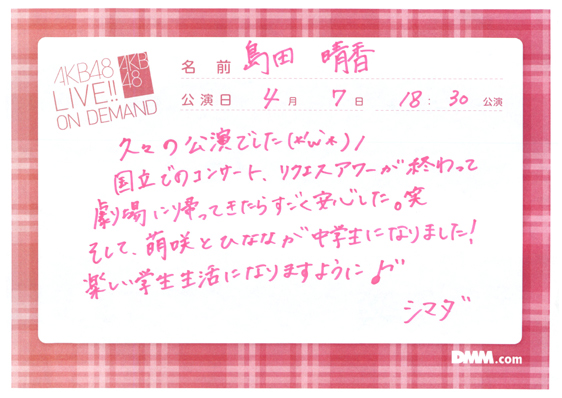 AKB48
LIVE!!
ON DEMAND
AKB
48
名前 島田 晴香
公演日 4月 7日 18:30 公演
久々の公演でした(*´ω`*)ノ
国立でのコンサート、リクエスアワーが終わって
劇場に帰ってきたらすごく安心した。笑
そして、萌咲とひななが中学生になりました!
楽しい学生生活になりますように♪
シマダ
DMM.com